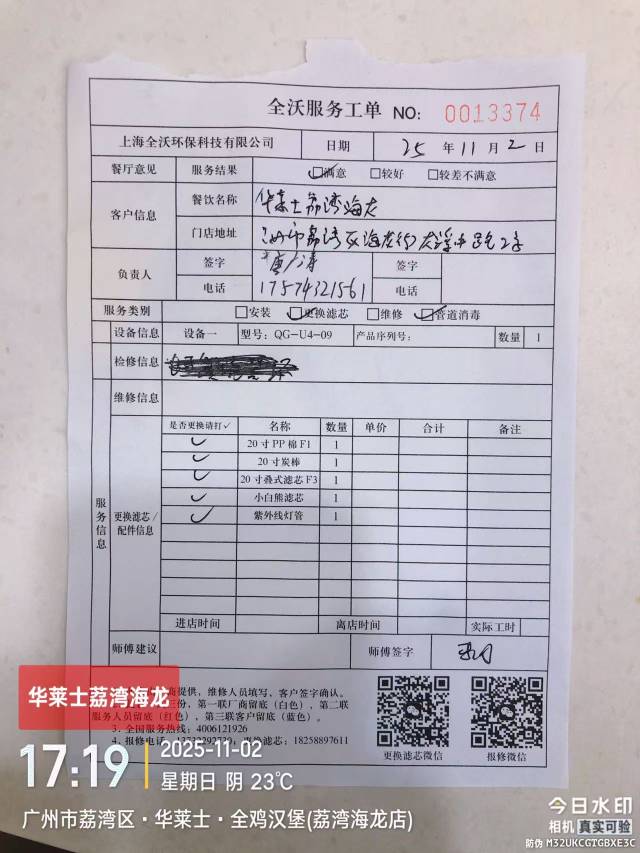 全沃服务工单 NO: 0013374
上海全沃环保科技有限公司 日期 25 年 11 月 2 日
餐厅意见 服务结果 满意 较好 较差不满意
客户信息 餐饮名称 华莱士荔湾海龙
门店地址
负责人 签字 签字
电话 17574321561 电话
服务类别 安装 更换滤芯 维修 管道消毒
设备信息 设备一 型号: QG-U4-09 产品序列号: 数量 1
检修信息
维修信息
服务信息
更换滤芯/配件信息
是否更换请打✓ 名称 数量 单价 合计 备注
✓ 20寸PP棉F1 1
✓ 20寸炭棒 1
✓ 20寸叠式滤芯F3 1
✓ 小白熊滤芯 1
✓ 紫外线灯管 1
进店时间 离店时间 实际工时
师傅建议 师傅签字
商提供，维修人员填写，客户签字确认。
三份，第一联厂商留底（白色），第二联
服务人员留底（红色），第三联客户留底（蓝色）。
3．全国服务热线：4006121926
4．报修电话： 更换滤芯：18258897611
更换滤芯微信 报修微信
华莱士荔湾海龙
17:19 2025-11-02
星期日 阴 23℃
广州市荔湾区·华莱士·全鸡汉堡(荔湾海龙店)
今日水印
相机 真实可验
防伪 M32UKCGTGBXE3C